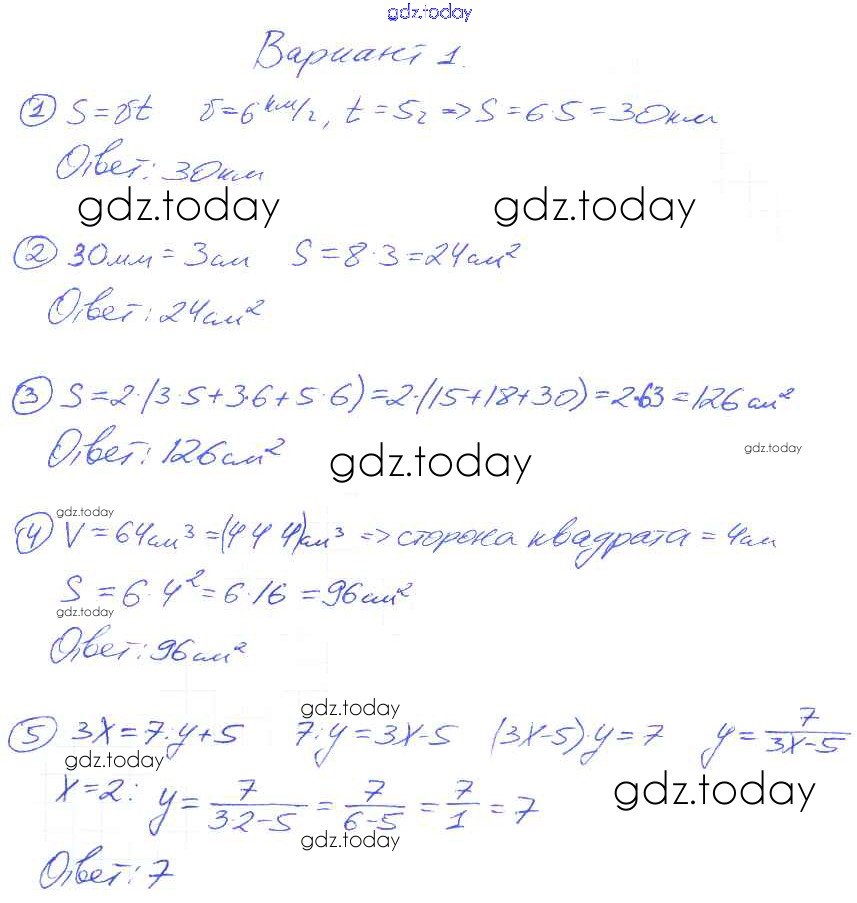 gdz.today
Вариант 1.
1 S=υt υ=6 км/ч, t=5ч => S=6·5=30км
Ответ: 30км
gdz.today gdz.today
2 30мм=3см S=8·3=24см²
Ответ: 24см²
3 S=2·(3·5+3·6+5·6)=2·(15+18+30)=2·63=126см²
Ответ: 126см²
gdz.today gdz.today
gdz.today
4 V=64см³=(4·4·4)см³ => сторона квадрата=4см
S=6·4²=6·16=96см²
gdz.today
Ответ: 96см²
gdz.today
5 3x=7:y+5 7:y=3x-5 (3x-5)·y=7 y=7/(3x-5)
gdz.today
x=2: y=7/(3·2-5)=7/(6-5)=7/1=7
gdz.today
gdz.today
Ответ: 7